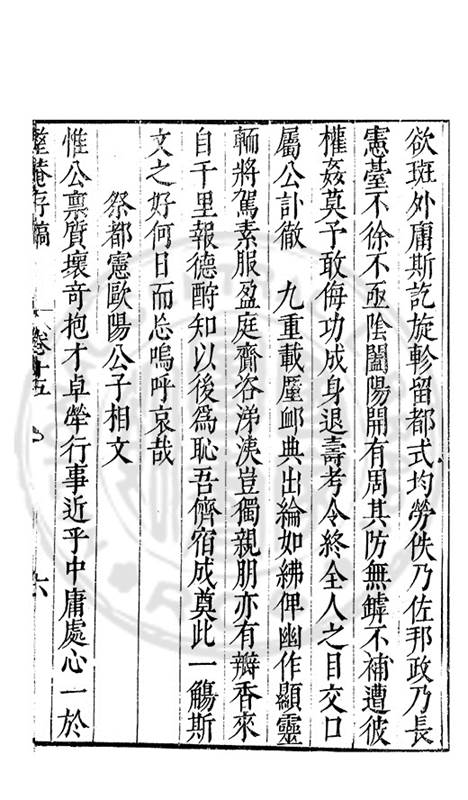 欲斑外庸斯訖旋軫留都式均勞佚乃佐邦政乃長
憲臺不徐不亟陰闔陽開有周其防無罅不補遭彼
權姦莫予敢侮功成身退壽考令終全人之目交口
屬公訃徹　九重載廑卹典出綸如紼俾幽作顯靈
輀將駕素服盈庭齎咨涕洟豈獨親朋亦有瓣香來
自千里報德酧知以後爲恥吾儕宿成奠此一觴斯
文之好何日而忘嗚呼哀哉
祭都憲歐陽公子相文
惟公禀質壞奇抱才卓犖行事近乎中庸處心一於
整菴存稿
卷十五
六